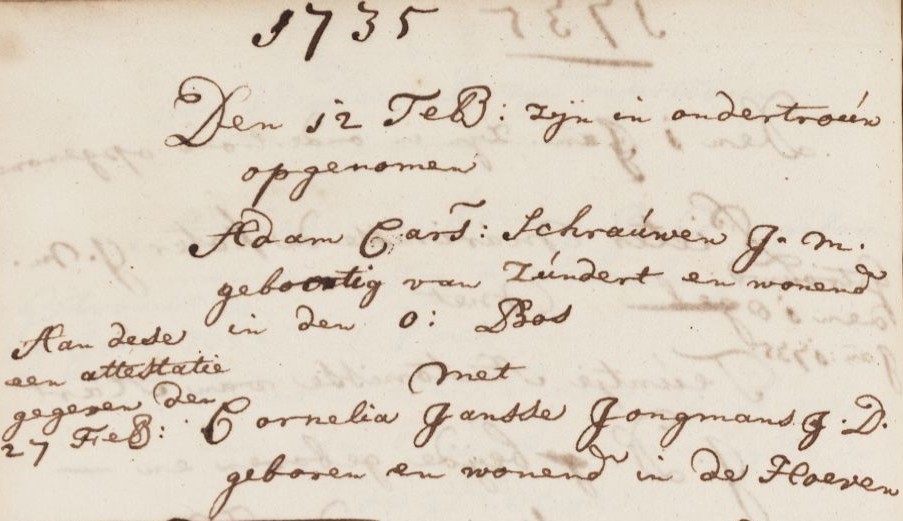 1735
Den 12 FeB: zijn in ondertroún
opgenomen
Adam Cars: Schraúwen J. m.
geboortig van Zúndert en wonend
in den o: Bos
met
Cornelia Jansse Jongmans J. D.
geboren en wonend in de Hoeven
Aan dese
een attestatie
gegeven den
27 FeB: